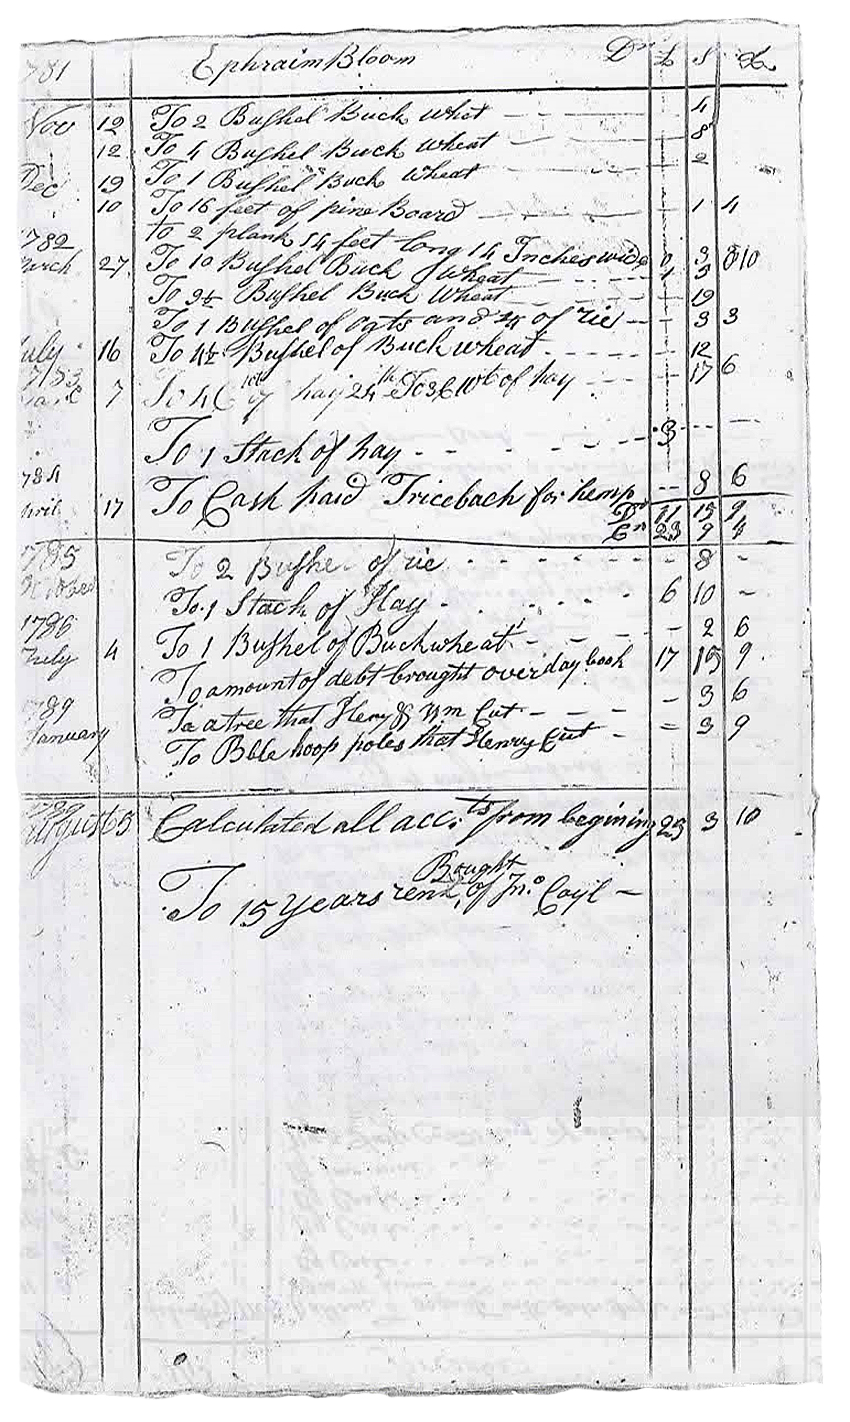 781 Ephraim Bloom Dr £ S D
Nov 12 To 2 Bushel Buck whet - - - 4
12 To 4 Bushel Buck wheat - - - 8
Dec 19 To 1 Bushel Buck wheat - 2
10 To 16 feet of pine Board - - - 1 4
1782 to 2 plank 14 feet long 14 Inches wide 0 3
arch 27 To 10 Bushel Buck wheat - - - 1 5
To 9½ Bushel Buck Wheat - - - 19
To 1 Bushel of oats and of rie - - 3 3
uly 16 To 4½ Bushel of Buck wheat - - - 12
7 hay 24th To 3 C 10wt of hay - - - 17 6
To 1 Stack of hay - - - - 3 - -
784
pril 17 To Cash paid Tricebach for hemp - - 8 6
Dr 11 15 9
Cr 23 9 4
1785 To 2 Bushe of rie - - - - - 8 -
October To 1 Stack of Hay - - - - 6 10 -
1786 To 1 Bushel of Buckwheat - - - - 2 6
July 4 To amount of debt brought over day book 17 15 9
1789 To a tree that Henry & Wm Cut - - - 3 6
January To Bble hoop poles that Henry Cut - = 3 9
1789
August 5 Calculated all acc.ts from begining 25 3 10
Bought
To 15 years rent, of Jno Coyl -